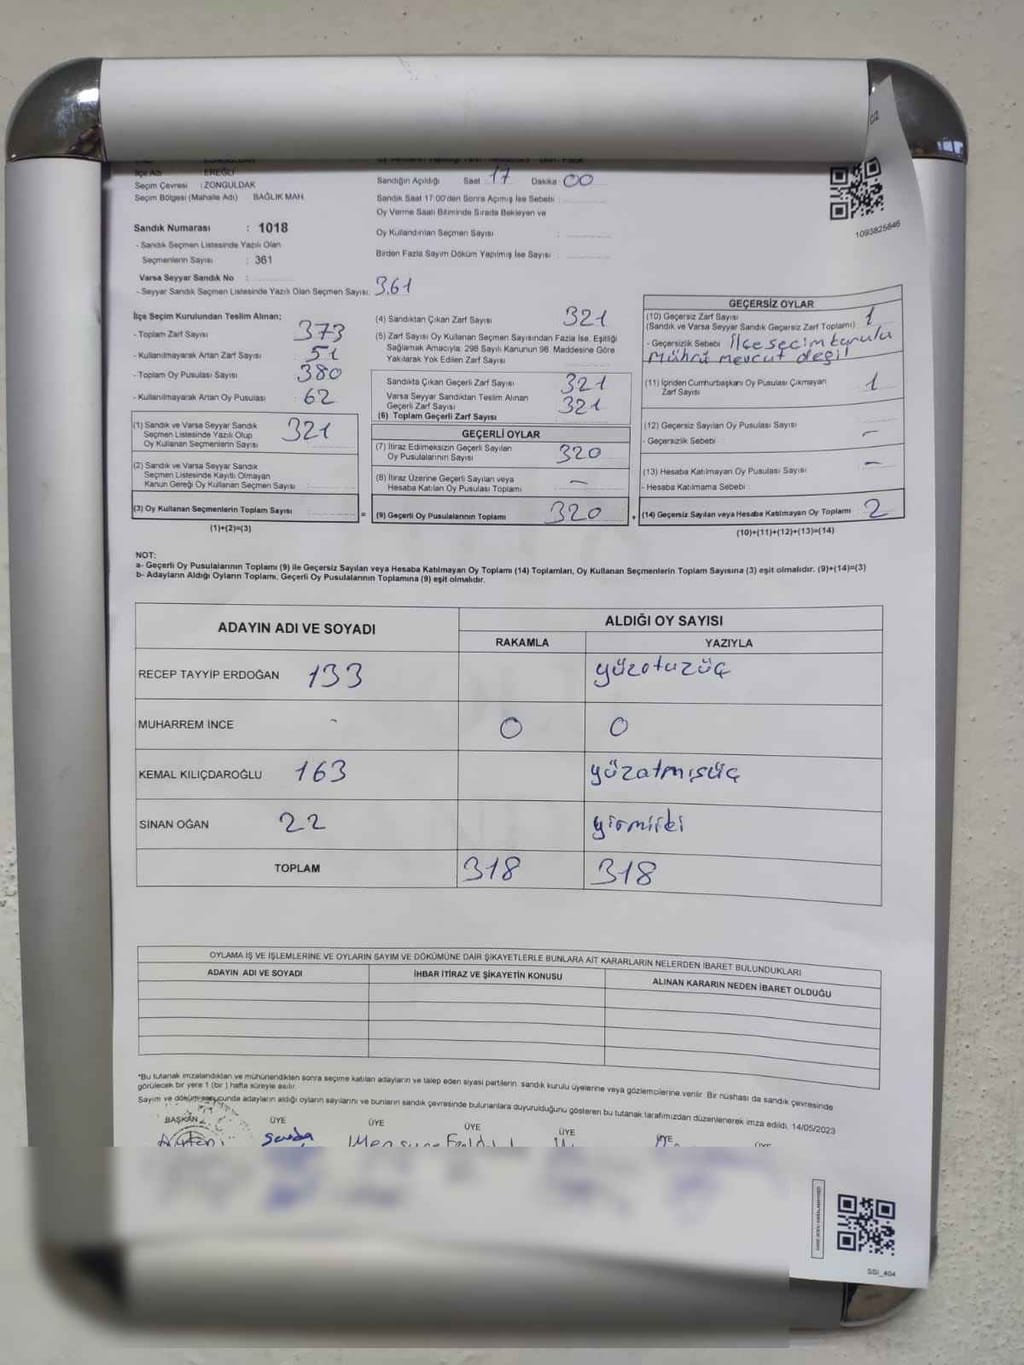 İlçe Adı : EREĞLİ
Seçim Çevresi : ZONGULDAK
Seçim Bölgesi (Mahalle Adı) BAĞLIK MAH.
Sandık Numarası : 1018
- Sandık Seçmen Listesinde Yazılı Olan
Seçmenlerin Sayısı : 361
Varsa Seyyar Sandık No :
- Seyyar Sandık Seçmen Listesinde Yazılı Olan Seçmen Sayısı: 361
Sandığın Açıldığı Saat 17 Dakika 00
Sandık Saat 17.00'den Sonra Açılmış İse Sebebi :
Oy Verme Saati Bitiminde Sırada Bekleyen ve
Oy Kullandırılan Seçmen Sayısı :
Birden Fazla Sayım Döküm Yapılmış İse Sayısı :
1093825646
İlçe Seçim Kurulundan Teslim Alınan;
- Toplam Zarf Sayısı 373
- Kullanılmayarak Artan Zarf Sayısı 51
- Toplam Oy Pusulası Sayısı 380
- Kullanılmayarak Artan Oy Pusulası 62
(1) Sandık ve Varsa Seyyar Sandık
Seçmen Listesinde Yazılı Olup
Oy Kullanan Seçmenlerin Sayısı 321
(2) Sandık ve Varsa Seyyar Sandık
Seçmen Listesinde Kayıtlı Olmayan
Kanun Gereği Oy Kullanan Seçmen Sayısı
(3) Oy Kullanan Seçmenlerin Toplam Sayısı
(1)+(2)=(3)
(4) Sandıktan Çıkan Zarf Sayısı 321
(5) Zarf Sayısı Oy Kullanan Seçmen Sayısından Fazla İse, Eşitliği
Sağlamak Amacıyla, 298 Sayılı Kanunun 98. Maddesine Göre
Yakılarak Yok Edilen Zarf Sayısı
Sandıkta Çıkan Geçerli Zarf Sayısı 321
Varsa Seyyar Sandıktan Teslim Alınan
Geçerli Zarf Sayısı 321
(6) Toplam Geçerli Zarf Sayısı
GEÇERLİ OYLAR
(7) İtiraz Edilmeksizin Geçerli Sayılan
Oy Pusulalarının Sayısı 320
(8) İtiraz Üzerine Geçerli Sayılan veya
Hesaba Katılan Oy Pusulası Toplamı -
(9) Geçerli Oy Pusulalarının Toplamı 320
GEÇERSİZ OYLAR
(10) Geçersiz Zarf Sayısı 1
(Sandık ve Varsa Seyyar Sandık Geçersiz Zarf Toplamı)
- Geçersizlik Sebebi İlçe seçim kurulu
mührü mevcut değil
(11) İçinden Cumhurbaşkanı Oy Pusulası Çıkmayan
Zarf Sayısı 1
(12) Geçersiz Sayılan Oy Pusulası Sayısı
- Geçersizlik Sebebi : -
(13) Hesaba Katılmayan Oy Pusulası Sayısı -
- Hesaba Katılmama Sebebi :
(14) Geçersiz Sayılan veya Hesaba Katılmayan Oy Toplamı 2
(10)+(11)+(12)+(13)=(14)
NOT:
a- Geçerli Oy Pusulalarının Toplamı (9) ile Geçersiz Sayılan veya Hesaba Katılmayan Oy Toplamı (14) Toplamları, Oy Kullanan Seçmenlerin Toplam Sayısına (3) eşit olmalıdır. (9)+(14)=(3)
b- Adayların Aldığı Oyların Toplamı, Geçerli Oy Pusulalarının Toplamına (9) eşit olmalıdır.
ADAYIN ADI VE SOYADI ALDIĞI OY SAYISI
RAKAMLA YAZIYLA
RECEP TAYYİP ERDOĞAN 133 yüzotuzüç
MUHARREM İNCE - 0 0
KEMAL KILIÇDAROĞLU 163 yüzatmışüç
SİNAN OĞAN 22 yirmiiki
TOPLAM 318 318
OYLAMA İŞ VE İŞLEMLERİNE VE OYLARIN SAYIM VE DÖKÜMÜNE DAİR ŞİKAYETLERLE BUNLARA AİT KARARLARIN NELERDEN İBARET BULUNDUKLARI
ADAYIN ADI VE SOYADI İHBAR İTİRAZ VE ŞİKAYETİN KONUSU ALINAN KARARIN NEDEN İBARET OLDUĞU
*Bu tutanak imzalandıktan ve mühürlendikten sonra seçime katılan adayların ve talep eden siyasi partilerin sandık kurulu üyelerine veya gözlemcilerine verilir. Bir nüshası da sandık çevresinde
görülecek bir yere 1 (bir) hafta süreyle asılır.
Sayım ve döküm sonucunda adayların aldığı oyların sayılarını ve bunların sandık çevresinde bulunanlara duyurulduğunu gösteren bu tutanak tarafımızdan düzenlenerek imza edildi. 14/05/2023
BAŞKAN ÜYE ÜYE ÜYE ÜYE ÜYE ÜYE
Sevda
SSİ_404